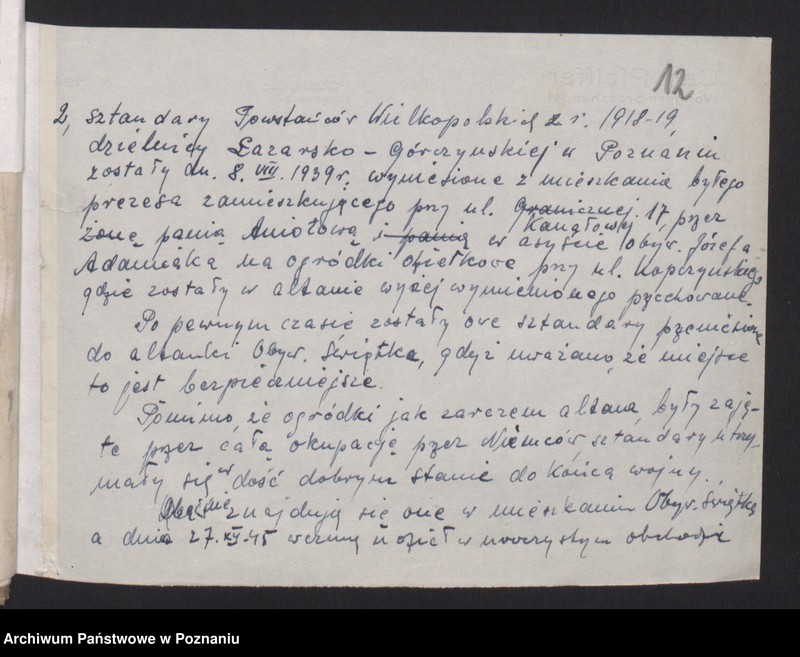 12
2, sztandary Powstańców Wielkopolskich z r. 1918-19,
dzielnicy Łazarsko - Górczyńskiej w Poznaniu
zostały dn. 8. VIII. 1939 r. wyniesione z mieszkania byłego
prezesa zamieszkującego przy ul. Granicznej 17, przez
Kanałowej
żonę panią Aniołową i panią w asyście Obyw. Józefa
Adamiaka na ogródki działkowe przy ul. Kopczyńskiego
gdzie zostały w altanie wyżej wymienionego przechowane.
Po pewnym czasie zostały owe sztandary przeniesione
do altanki Obyw. Świętka, gdyż uważano, że miejsce
to jest bezpieczniejsze.
Pomimo, że ogródki jak zarazem altana były zaję-
te przez całą okupację przez Niemców, sztandary utrzy-
mały się w dość dobrym stanie do końca wojny.
Obecnie znajdują się one w mieszkaniu Obyw. Świętka
a dnia 27. XII. 45 wezmą udział w uroczystym obchodzie
Archiwum Państwowe w Poznaniu